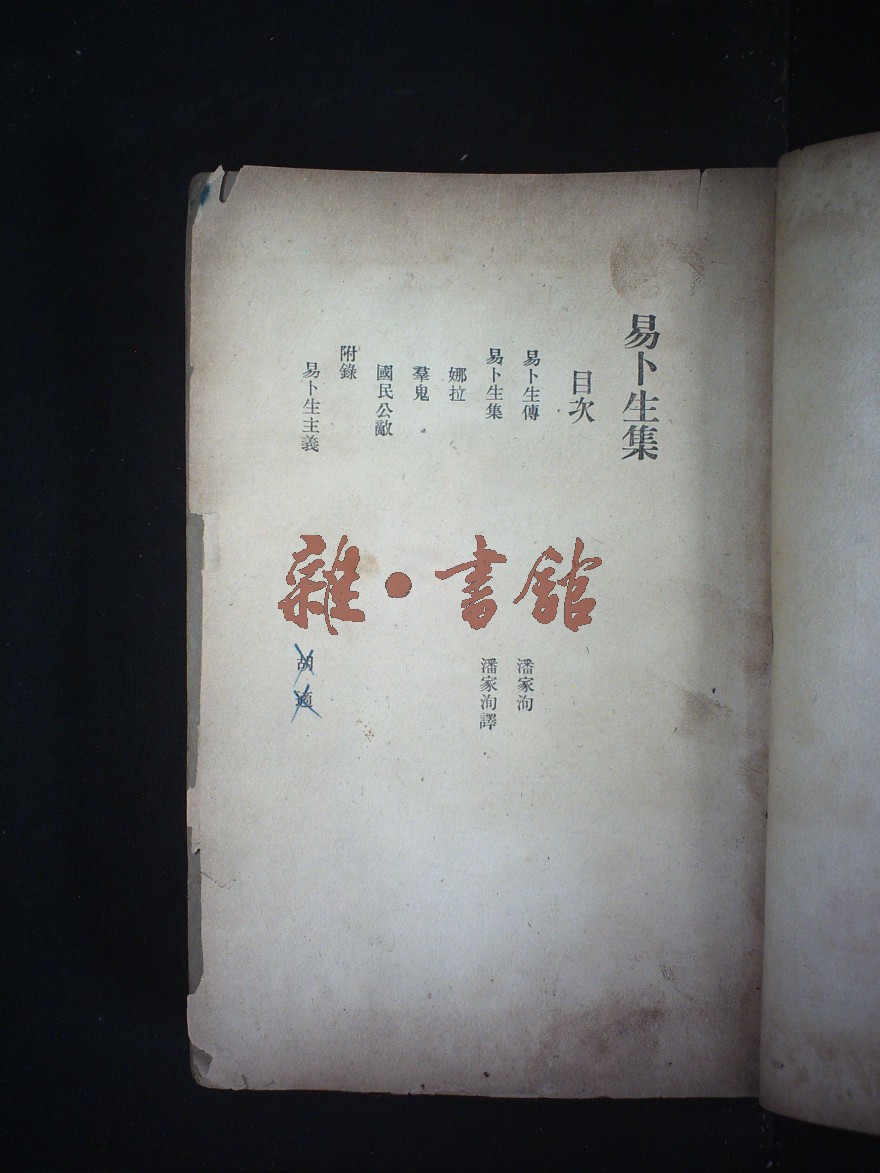 易卜生集
目次
易卜生傳 潘家洵
易卜生集 潘家洵譯
娜拉
羣鬼
國民公敵
附錄
易卜生主義 胡適
雜·書館